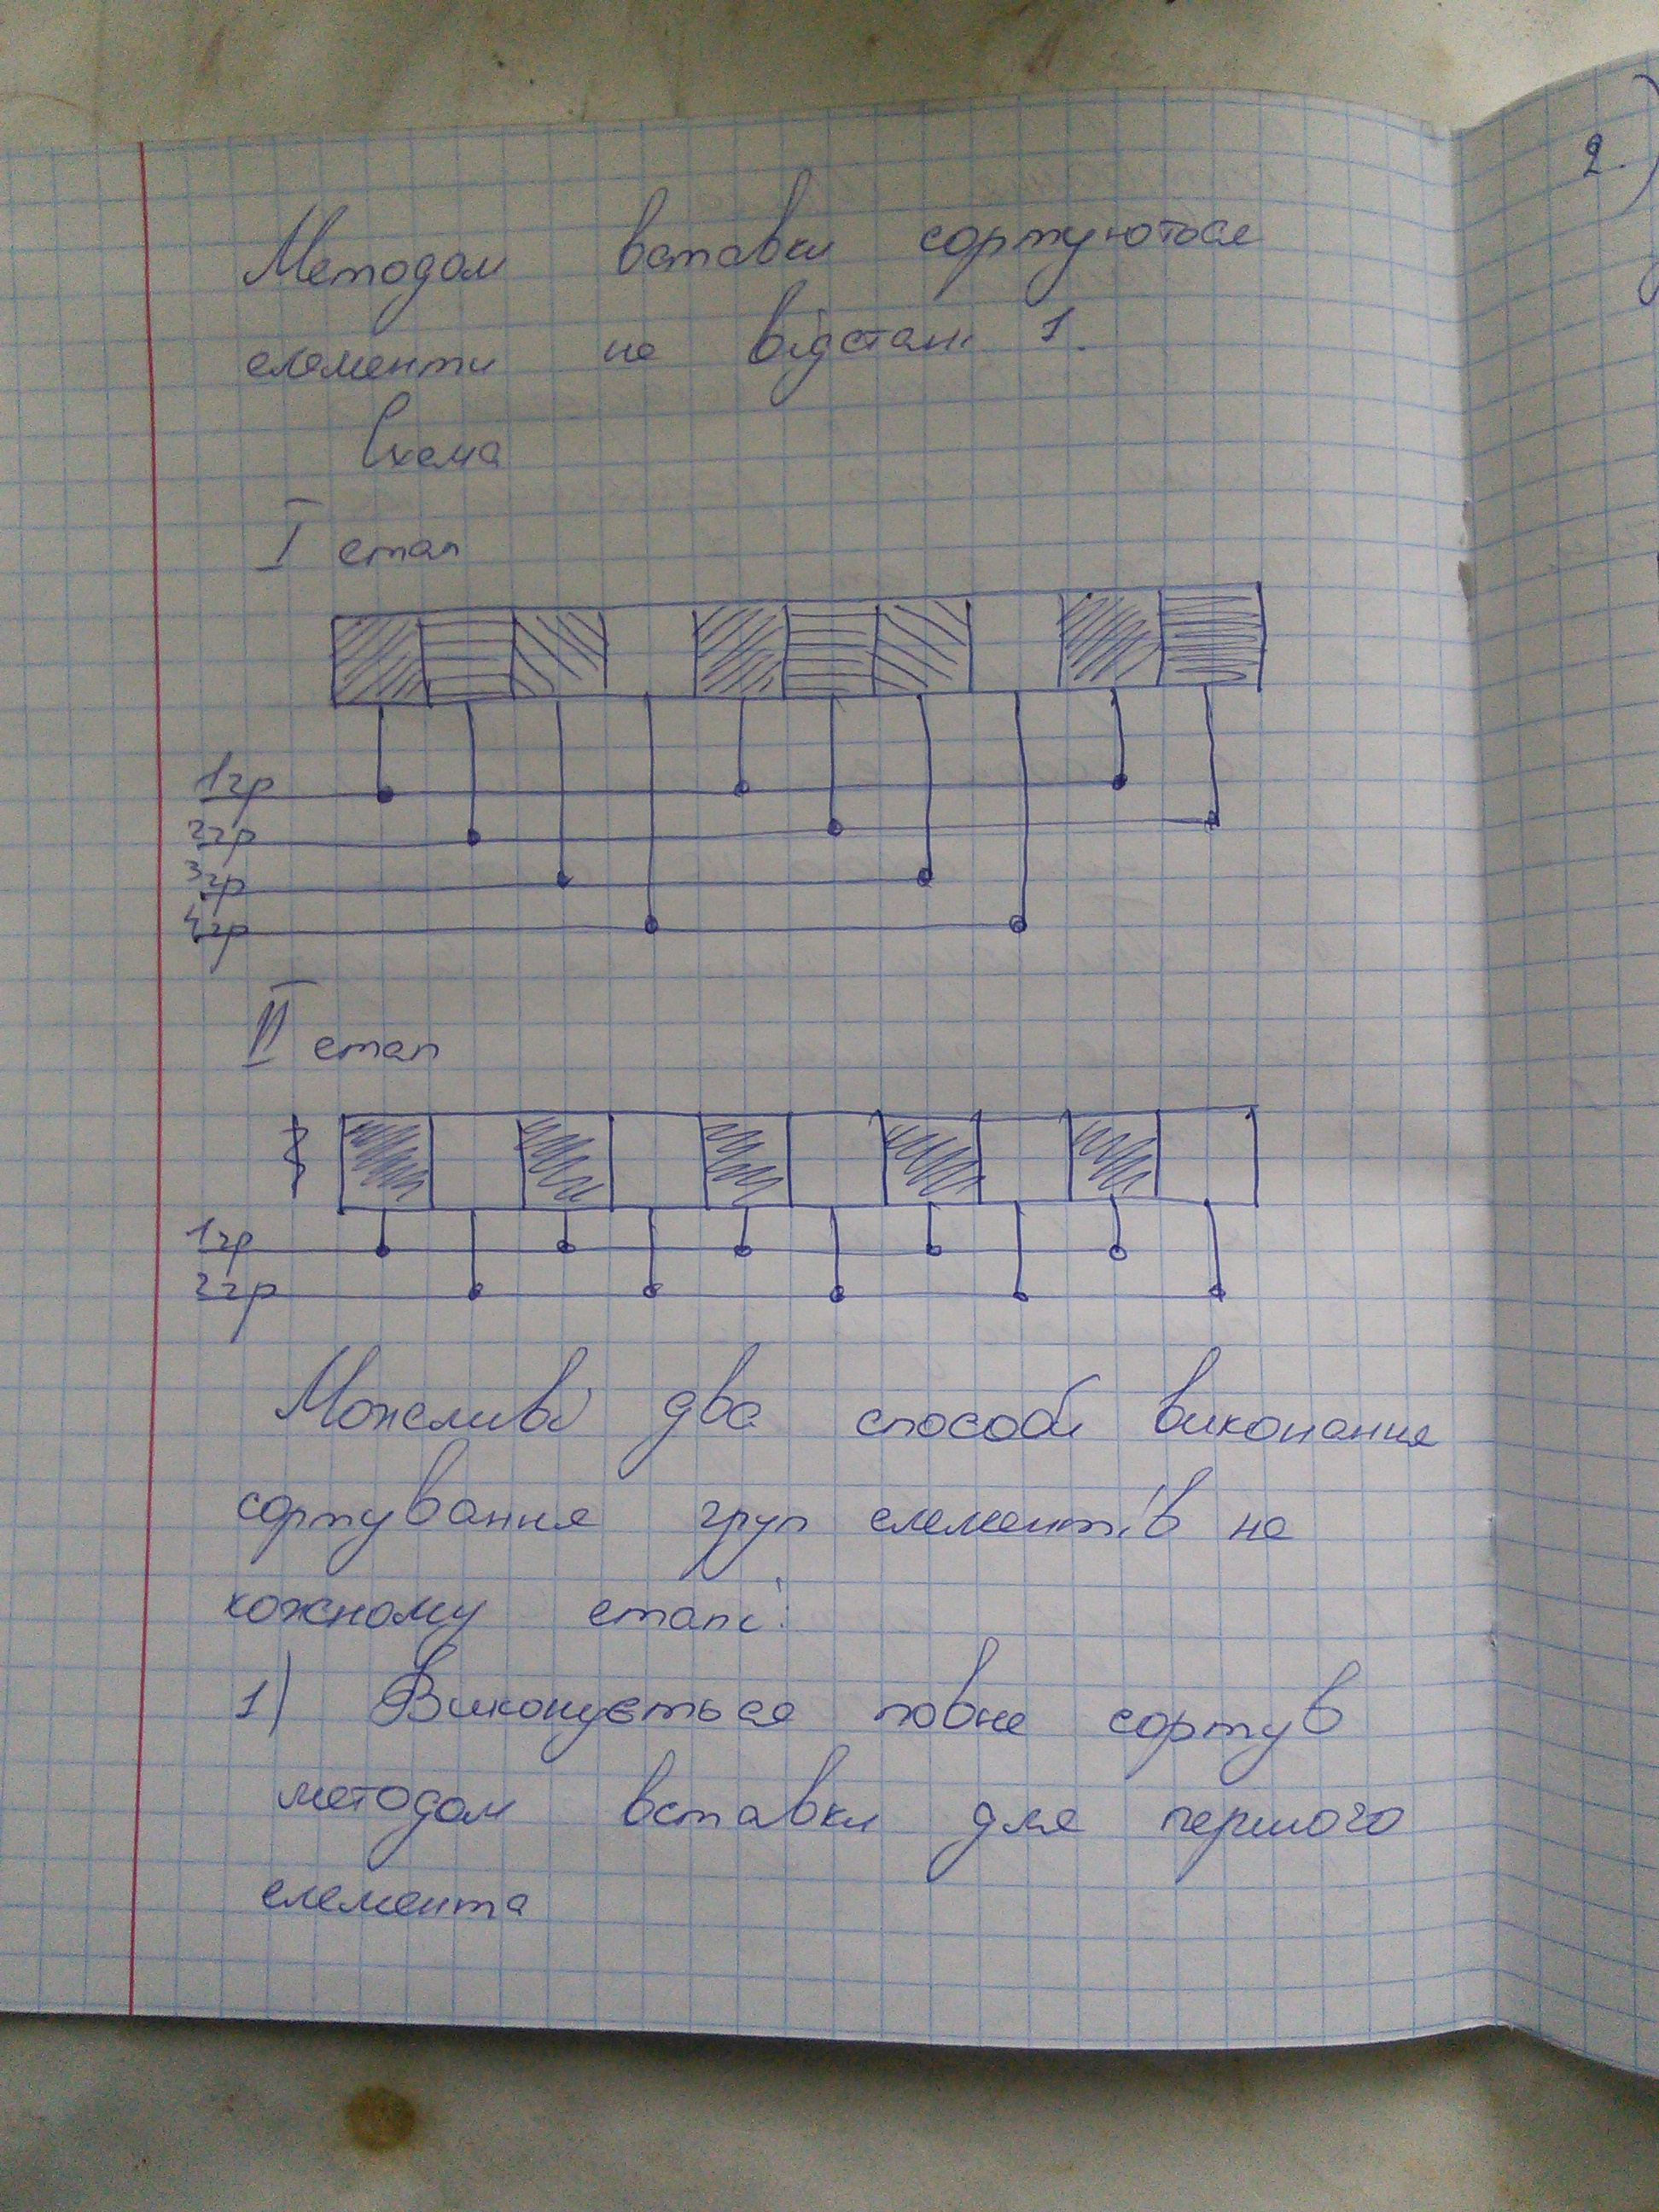 Методом вставки сортуються
елементи на відстані 1.
Схема
I етап
1гр
2гр
3гр
4гр
II етап
1гр
2гр
Можливі два способи виконання
сортування груп елементів на
кожному етапі:
1) Виконується повне сортув
методом вставки для першого
елемента
2.)